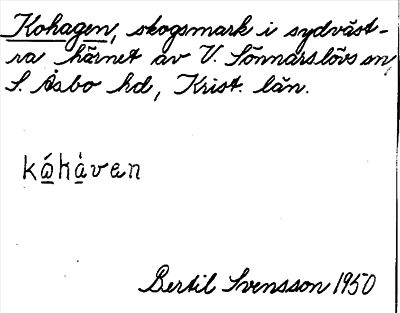 Kohagen, skogsmark i sydväst-
ra hörnet av V. Sönnarslövs sn,
S. Åsbo hd, Krist. län.
kǻhȧven
Bertil Svensson 1950